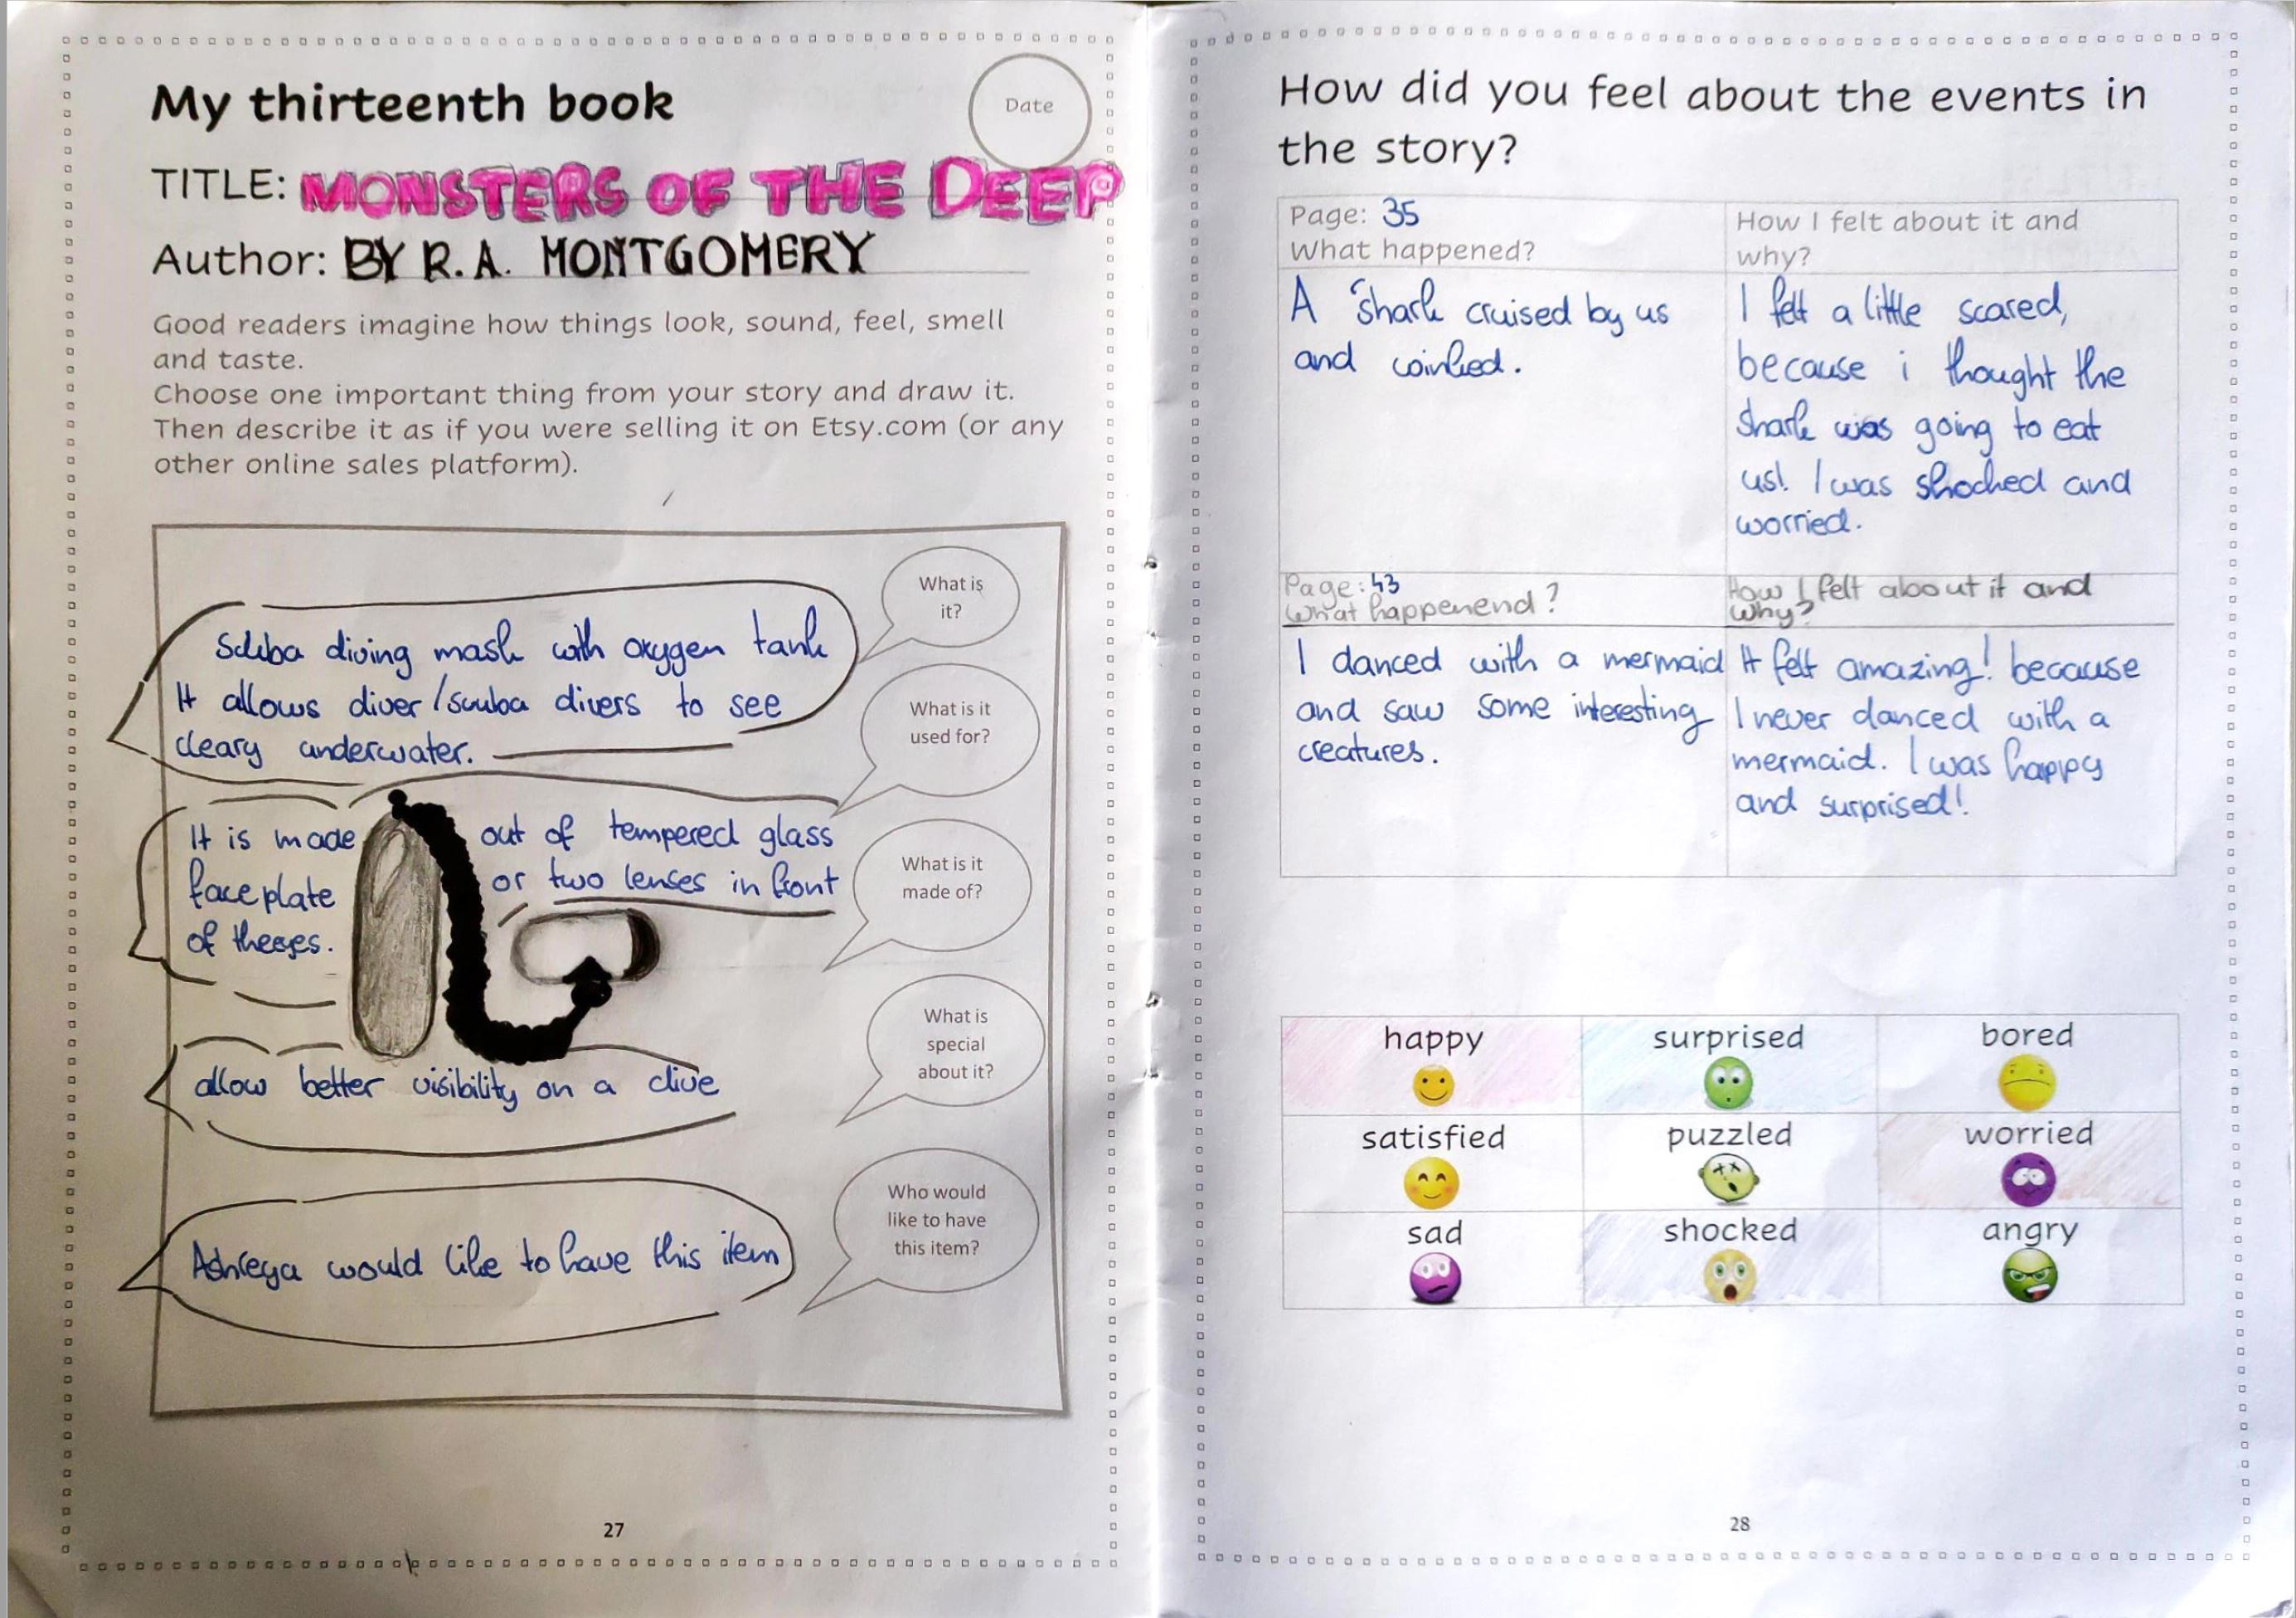 My thirteenth book
Date
TITLE: MONSTERS OF THE DEEP
Author: BY R.A. MONTGOMERY
Good readers imagine how things look, sound, feel, smell
and taste.
Choose one important thing from your story and draw it.
Then describe it as if you were selling it on Etsy.com (or any
other online sales platform).
What is
it?
Scuba diving mask with oxygen tank
It allows diver/scuba divers to see
cleary underwater.
What is it
used for?
It is made out of tempered glass
faceplate or two lenses in front
of theeyes.
What is it
made of?
allow better visibility on a dive
What is
special
about it?
Who would
like to have
this item?
would like to have this item
27
How did you feel about the events in
the story?
Page: 35
What happened?
How I felt about it and
why?
A shark cruised by us
and winked.
I felt a little scared,
because i thought the
shark was going to eat
us! I was shocked and
worried.
Page: 43
What happenend?
How I felt about it and
why?
I danced with a mermaid
and saw some interesting
creatures.
It felt amazing! because
I never danced with a
mermaid. I was happy
and surprised!
happy surprised bored
satisfied puzzled worried
sad shocked angry
28